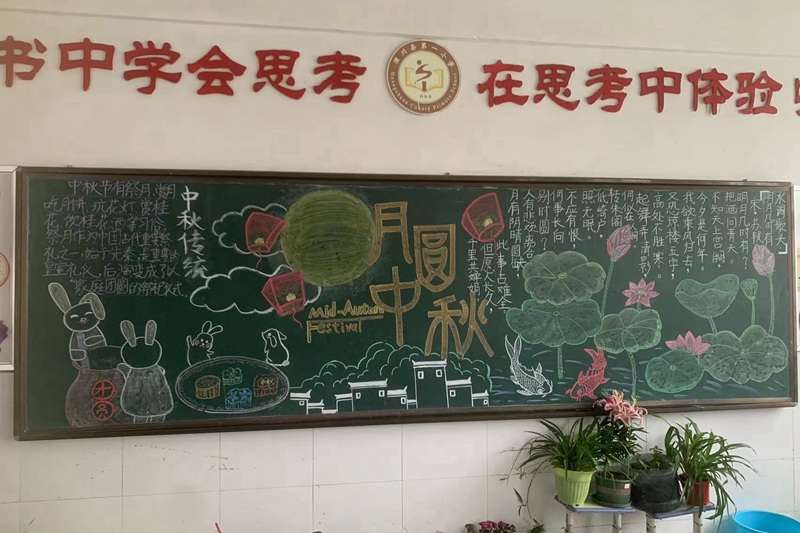 书中学会思考
在思考中体验
中秋传统
中秋节有祭月、赏月
吃月饼、玩花灯、赏桂
花、饮桂花酒等习俗
祭月作为中国古代重要祭
礼之一,始于先秦,是重要的
皇室礼仪,后演变成了以
家庭团圆的祭祀仪式
月圆
中秋
Mid-Autumn
Festival
水调歌头
明月几时有
明月几时有?
把酒问青天
不知天上宫阙,
今夕是何年。
我欲乘风归去,
又恐琼楼玉宇,
高处不胜寒。
起舞弄清影,
何似在人间
转朱阁
低绮户,
照无眠。
不应有恨
何事长向
别时圆?
人有悲欢离合
月有阴晴圆缺,
此事古难全。
但愿人长久,
千里共婵娟